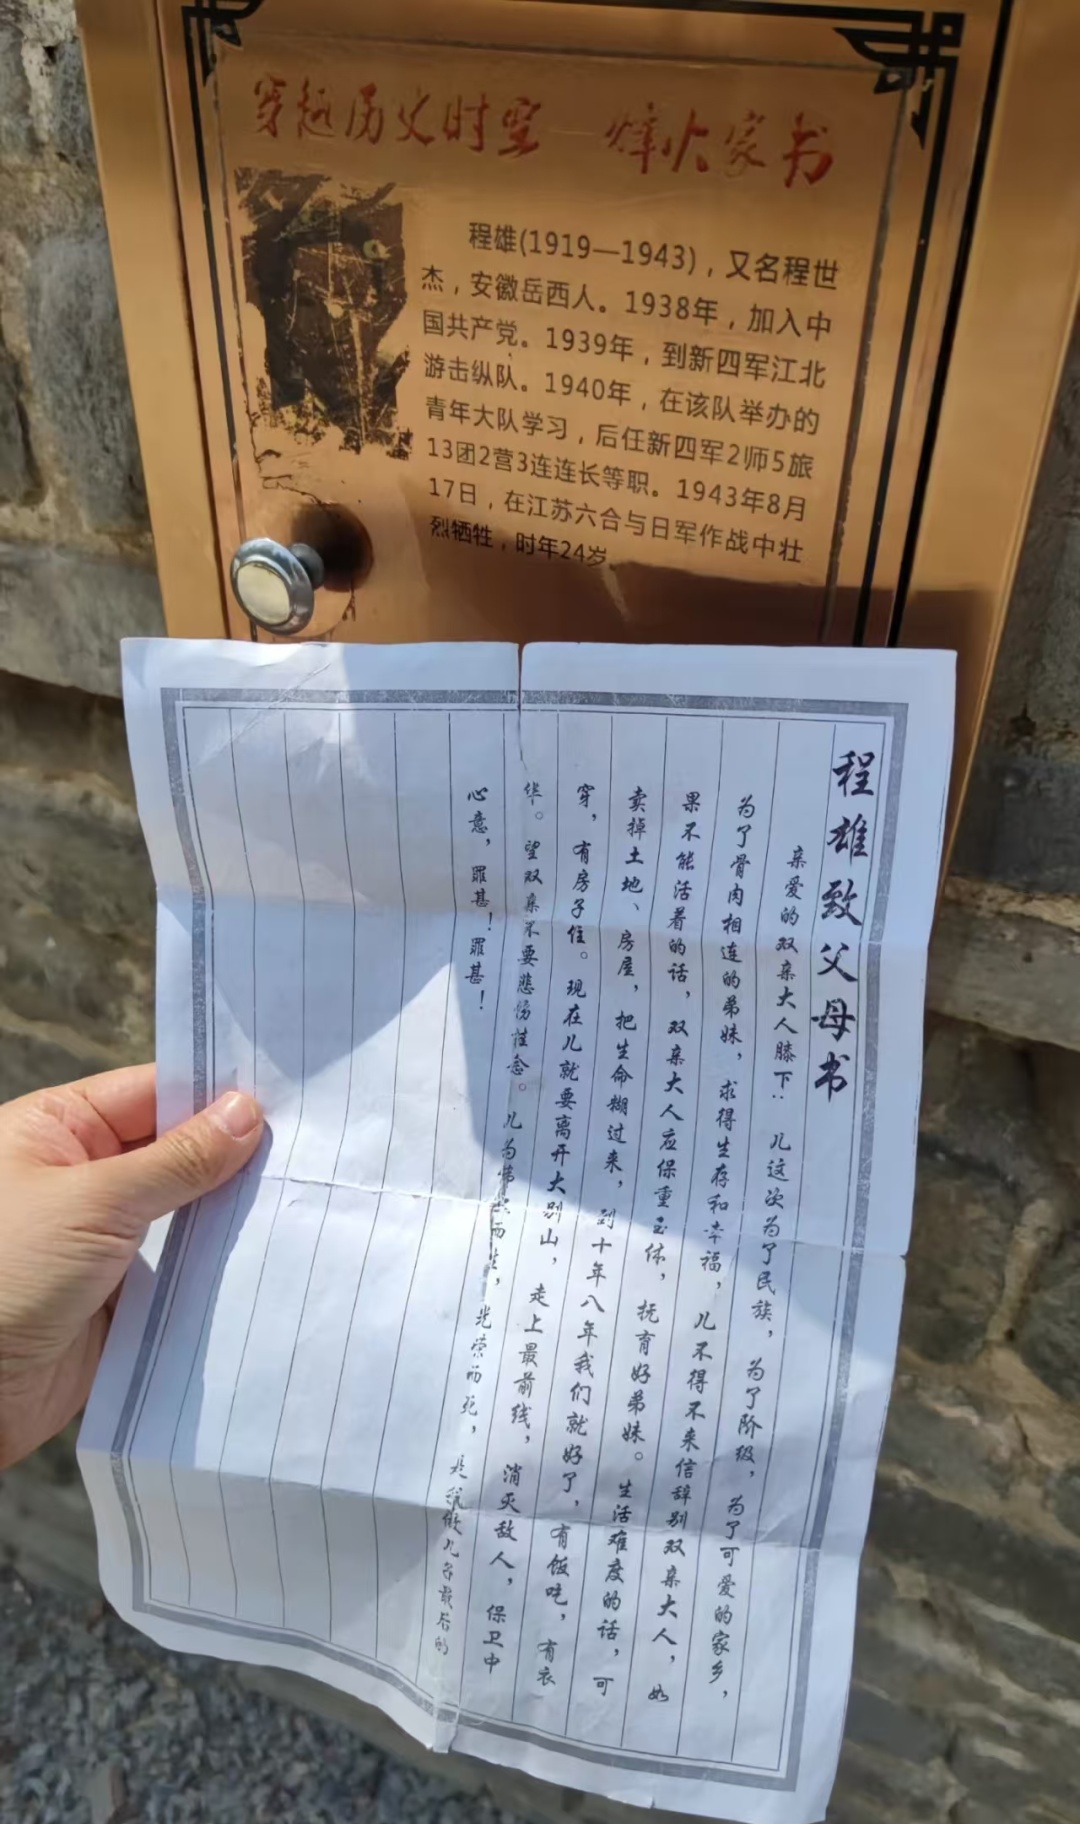 穿越历史时空 烽火家书
程雄(1919—1943)，又名程世
杰，安徽岳西人。1938年，加入中
国共产党。1939年，到新四军江北
游击纵队。1940年，在该队举办的
青年大队学习，后任新四军2师5旅
13团2营3连连长等职。1943年8月
17日，在江苏六合与日军作战中壮
烈牺牲，时年24岁。
程雄致父母书
亲爱的双亲大人膝下：儿这次为了民族，为了阶级，为了可爱的家乡，
为了骨肉相连的弟妹，求得生存和幸福，儿不得不来信辞别双亲大人，如
果不能活着的话，双亲大人应保重玉体，抚育好弟妹。生活难度的话，可
卖掉土地、房屋，把生命糊过来，到十年八年我们就好了，有饭吃，有衣
穿，有房子住。现在儿就要离开大别山，走上最前线，消灭敌人，保卫中
华。望双亲不要悲伤挂念。儿为 而生，光荣而死，是我做儿子最后的
心意，罪甚！罪甚！